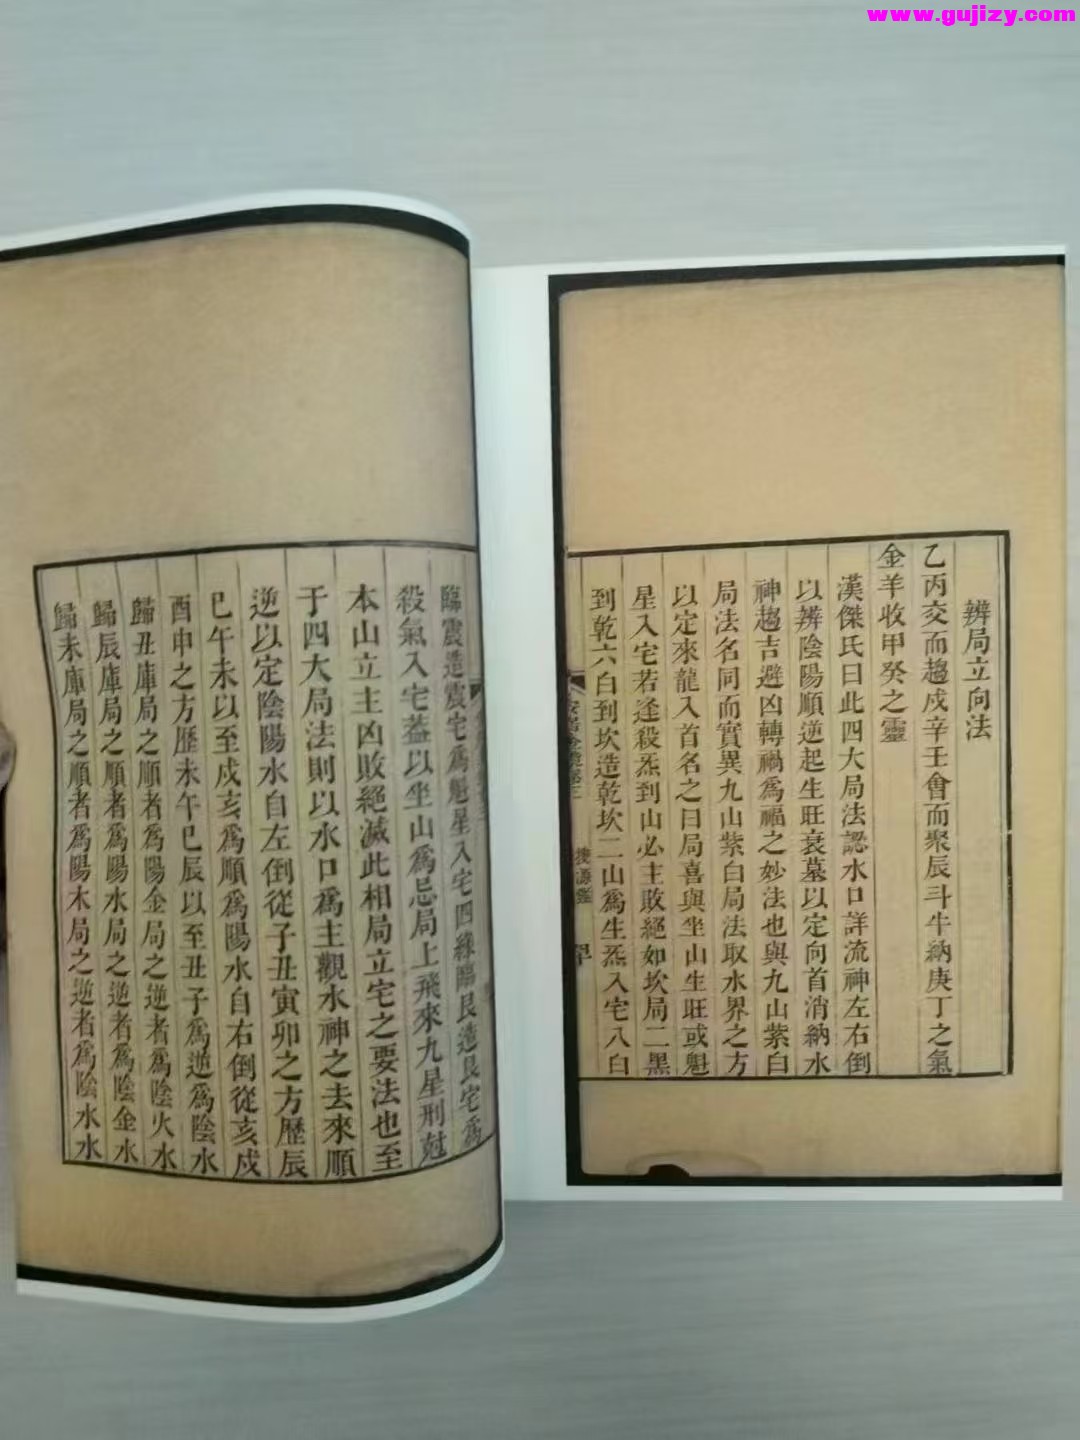 www.gujizy.com
辨局立向法
乙丙交而趨戍辛壬會而聚辰斗牛納庚丁之氣
金羊收甲癸之靈
漢傑氏曰此四大局法認水口詳流神左右倒
以辨陰陽順逆起生旺衰墓以定向首消納水
神趨吉避凶轉禍爲福之妙法也與九山紫白
局法名同而實異九山紫白局法取水界之方
以定來龍入首名之曰局喜與坐山生旺或魁
星入宅若逢殺炁到山必主敗絕如坎局二黑
到乾六白到坎造乾坎二山爲生炁入宅八白
安居金鏡卷三
臨震造震宅爲魁星入宅四綠臨艮造艮宅爲
殺氣入宅葢以坐山爲忌局上飛來九星刑尅
本山立主凶敗絕滅此相局立宅之要法也至
于四大局法則以水口爲主觀水神之去來順
逆以定陰陽水自左倒從子丑寅卯之方歷辰
巳午未以至戍亥爲順爲陽水自右倒從亥戍
酉申之方歷未午巳辰以至丑子爲逆爲陰水
歸丑庫局之順者爲陽金局之逆者爲陰火水
歸辰庫局之順者爲陽水局之逆者爲陰金水
歸未庫局之順者爲陽木局之逆者爲陰水水